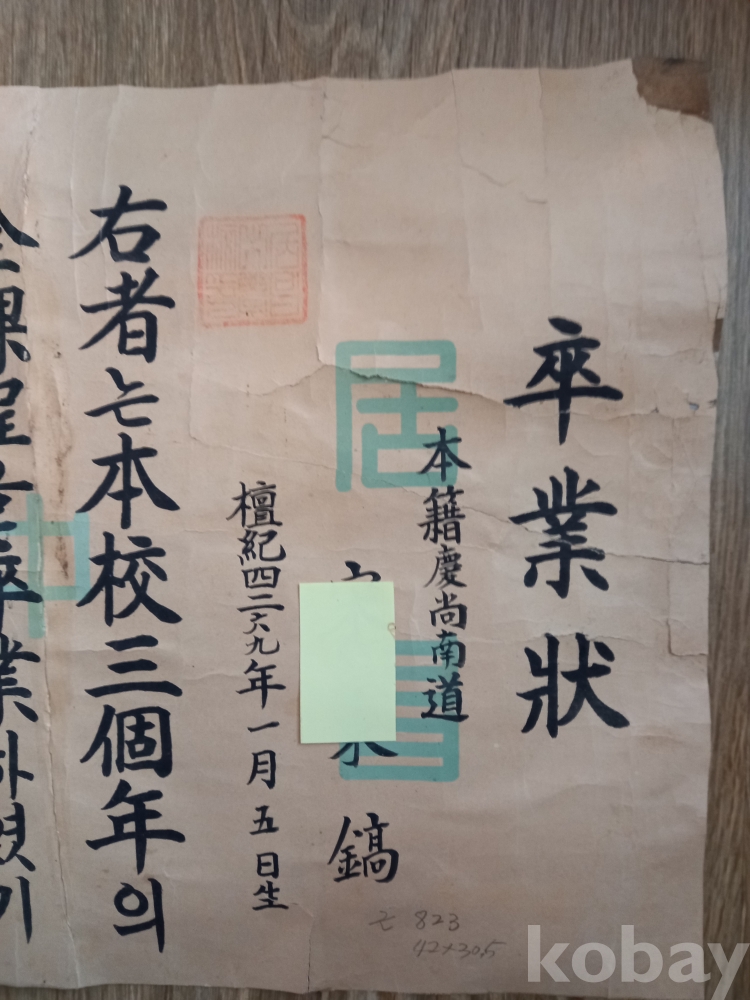 卒業狀
本籍慶尚南道
鎬
檀紀四二六九年一月五日生
右者는本校三個年의
全課程을卒業하엿기
居
823
42×30.5
kobay